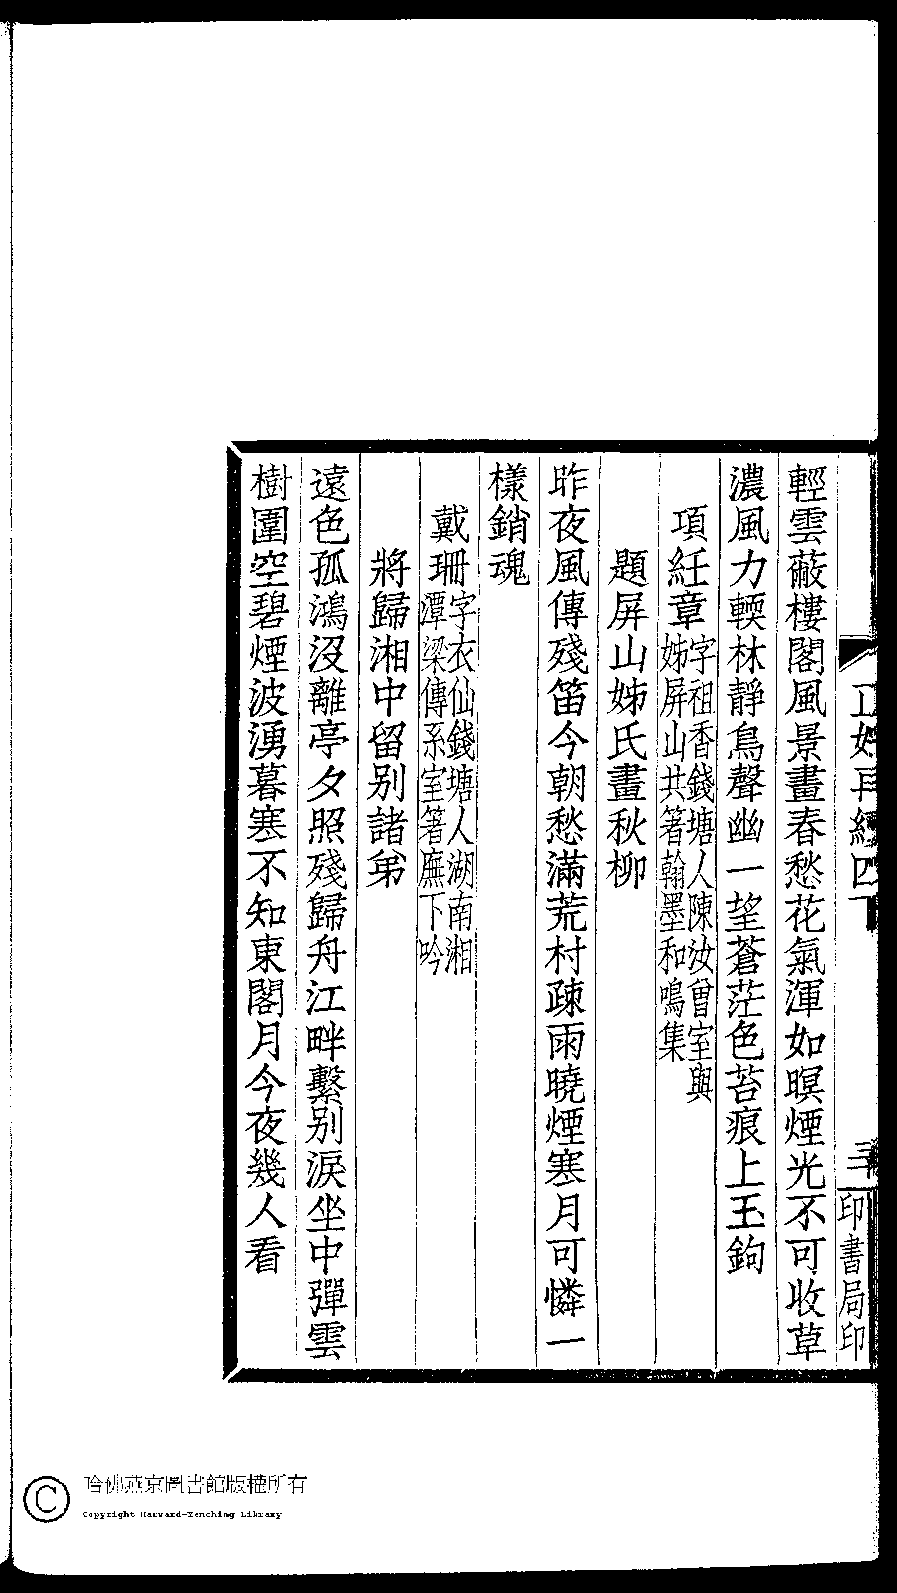 輕雲蔽樓閣風景畫春愁花氣渾如暝煙光不可收草
濃風力輭林靜鳥聲幽一望蒼茫色苔痕上玉鉤
項紝章字祖香錢塘人陳汝曾室與
姊屏山共箸翰墨和鳴集
題屏山姊氏畫秋柳
昨夜風傳殘笛今朝愁滿荒村疎雨曉煙寒月可憐一
樣銷魂
戴珊字衣仙錢塘人湖南湘
潭梁傳系室箸廡下吟
將歸湘中留別諸弟
遠色孤鴻沒離亭夕照殘歸舟江畔繫別淚坐中彈雲
樹圍空碧煙波湧暮寒不知東閣月今夜幾人看
四下
印書局印
哈佛燕京圖書館版權所有
Copyright Harvard-Yenching Library